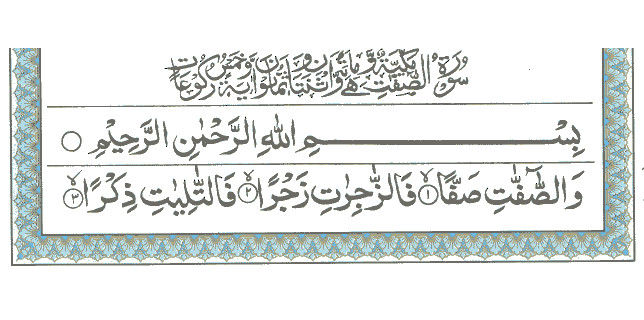 سُوْرَةُ الصّٰٓفّٰتِ مَكِّيَّةٌ وَّهِيَ مِائَةٌ وَّاثْنَتَانِ وَثَمٰنُوْنَ اٰيَةً وَّخَمْسُ رُكُوْعَاتٍ
بِسْمِ اللّٰهِ الرَّحْمٰنِ الرَّحِيْمِ ○
وَالصّٰٓفّٰتِ صَفًّا ۙ﴿۱﴾ فَالزّٰجِرٰتِ زَجْرًا ۙ﴿۲﴾ فَالتّٰلِيٰتِ ذِكْرًا ۙ﴿۳﴾